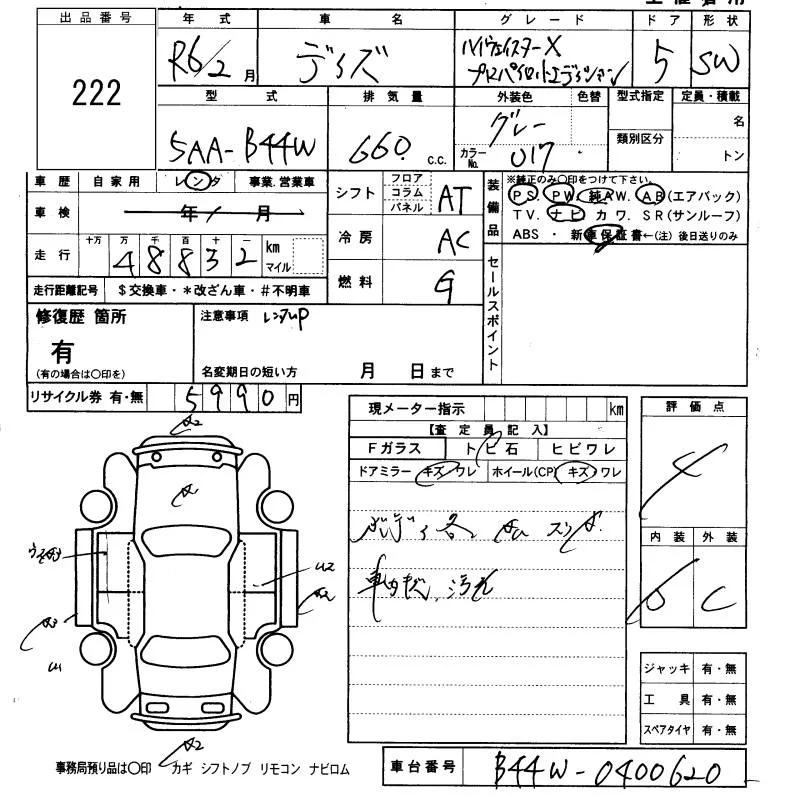 出品番号 年式 車名 グレード ドア 形状
222 R6/2月 デイズ ハイウェイスターX プロパイロットエディション 5 SW
型式 排気量 外装色 色替 型式指定 定員・積載
5AA-B44W 660 c.c. グレー 名
カラーNo. 017 類別区分 トン
車歴 自家用 レンタ 事業.営業車
車検 年 月
走行 十万 万 千 百 十 一 km マイル
48832
走行距離記号 $交換車・*改ざん車・#不明車
シフト フロア コラム パネル AT
冷房 AC
燃料 G
装備品 ※純正のみ○印をつけて下さい。
PS. PW. 純AW. AB(エアバック)
TV. ナビ カワ. SR(サンルーフ)
ABS ・ 新車保証書←(注)後日送りのみ
セールスポイント
修復歴 箇所
有
(有の場合は○印を)
注意事項 レンタUP
名変期日の短い方 月 日まで
リサイクル券 有・無 5990円
現メーター指示 km
【査定員記入】
Fガラス トビ石 ヒビワレ
ドアミラー キズ ワレ ホイール(CP) キズ ワレ
ボディ各
車内 汚れ
評価点
4
内装 外装
C
A2
U2
A2
A3
U1
A2
ジャッキ 有・無
工具 有・無
スペアタイヤ 有・無
事務局預り品は○印 カギ シフトノブ リモコン ナビロム
車台番号 B44W-0400620